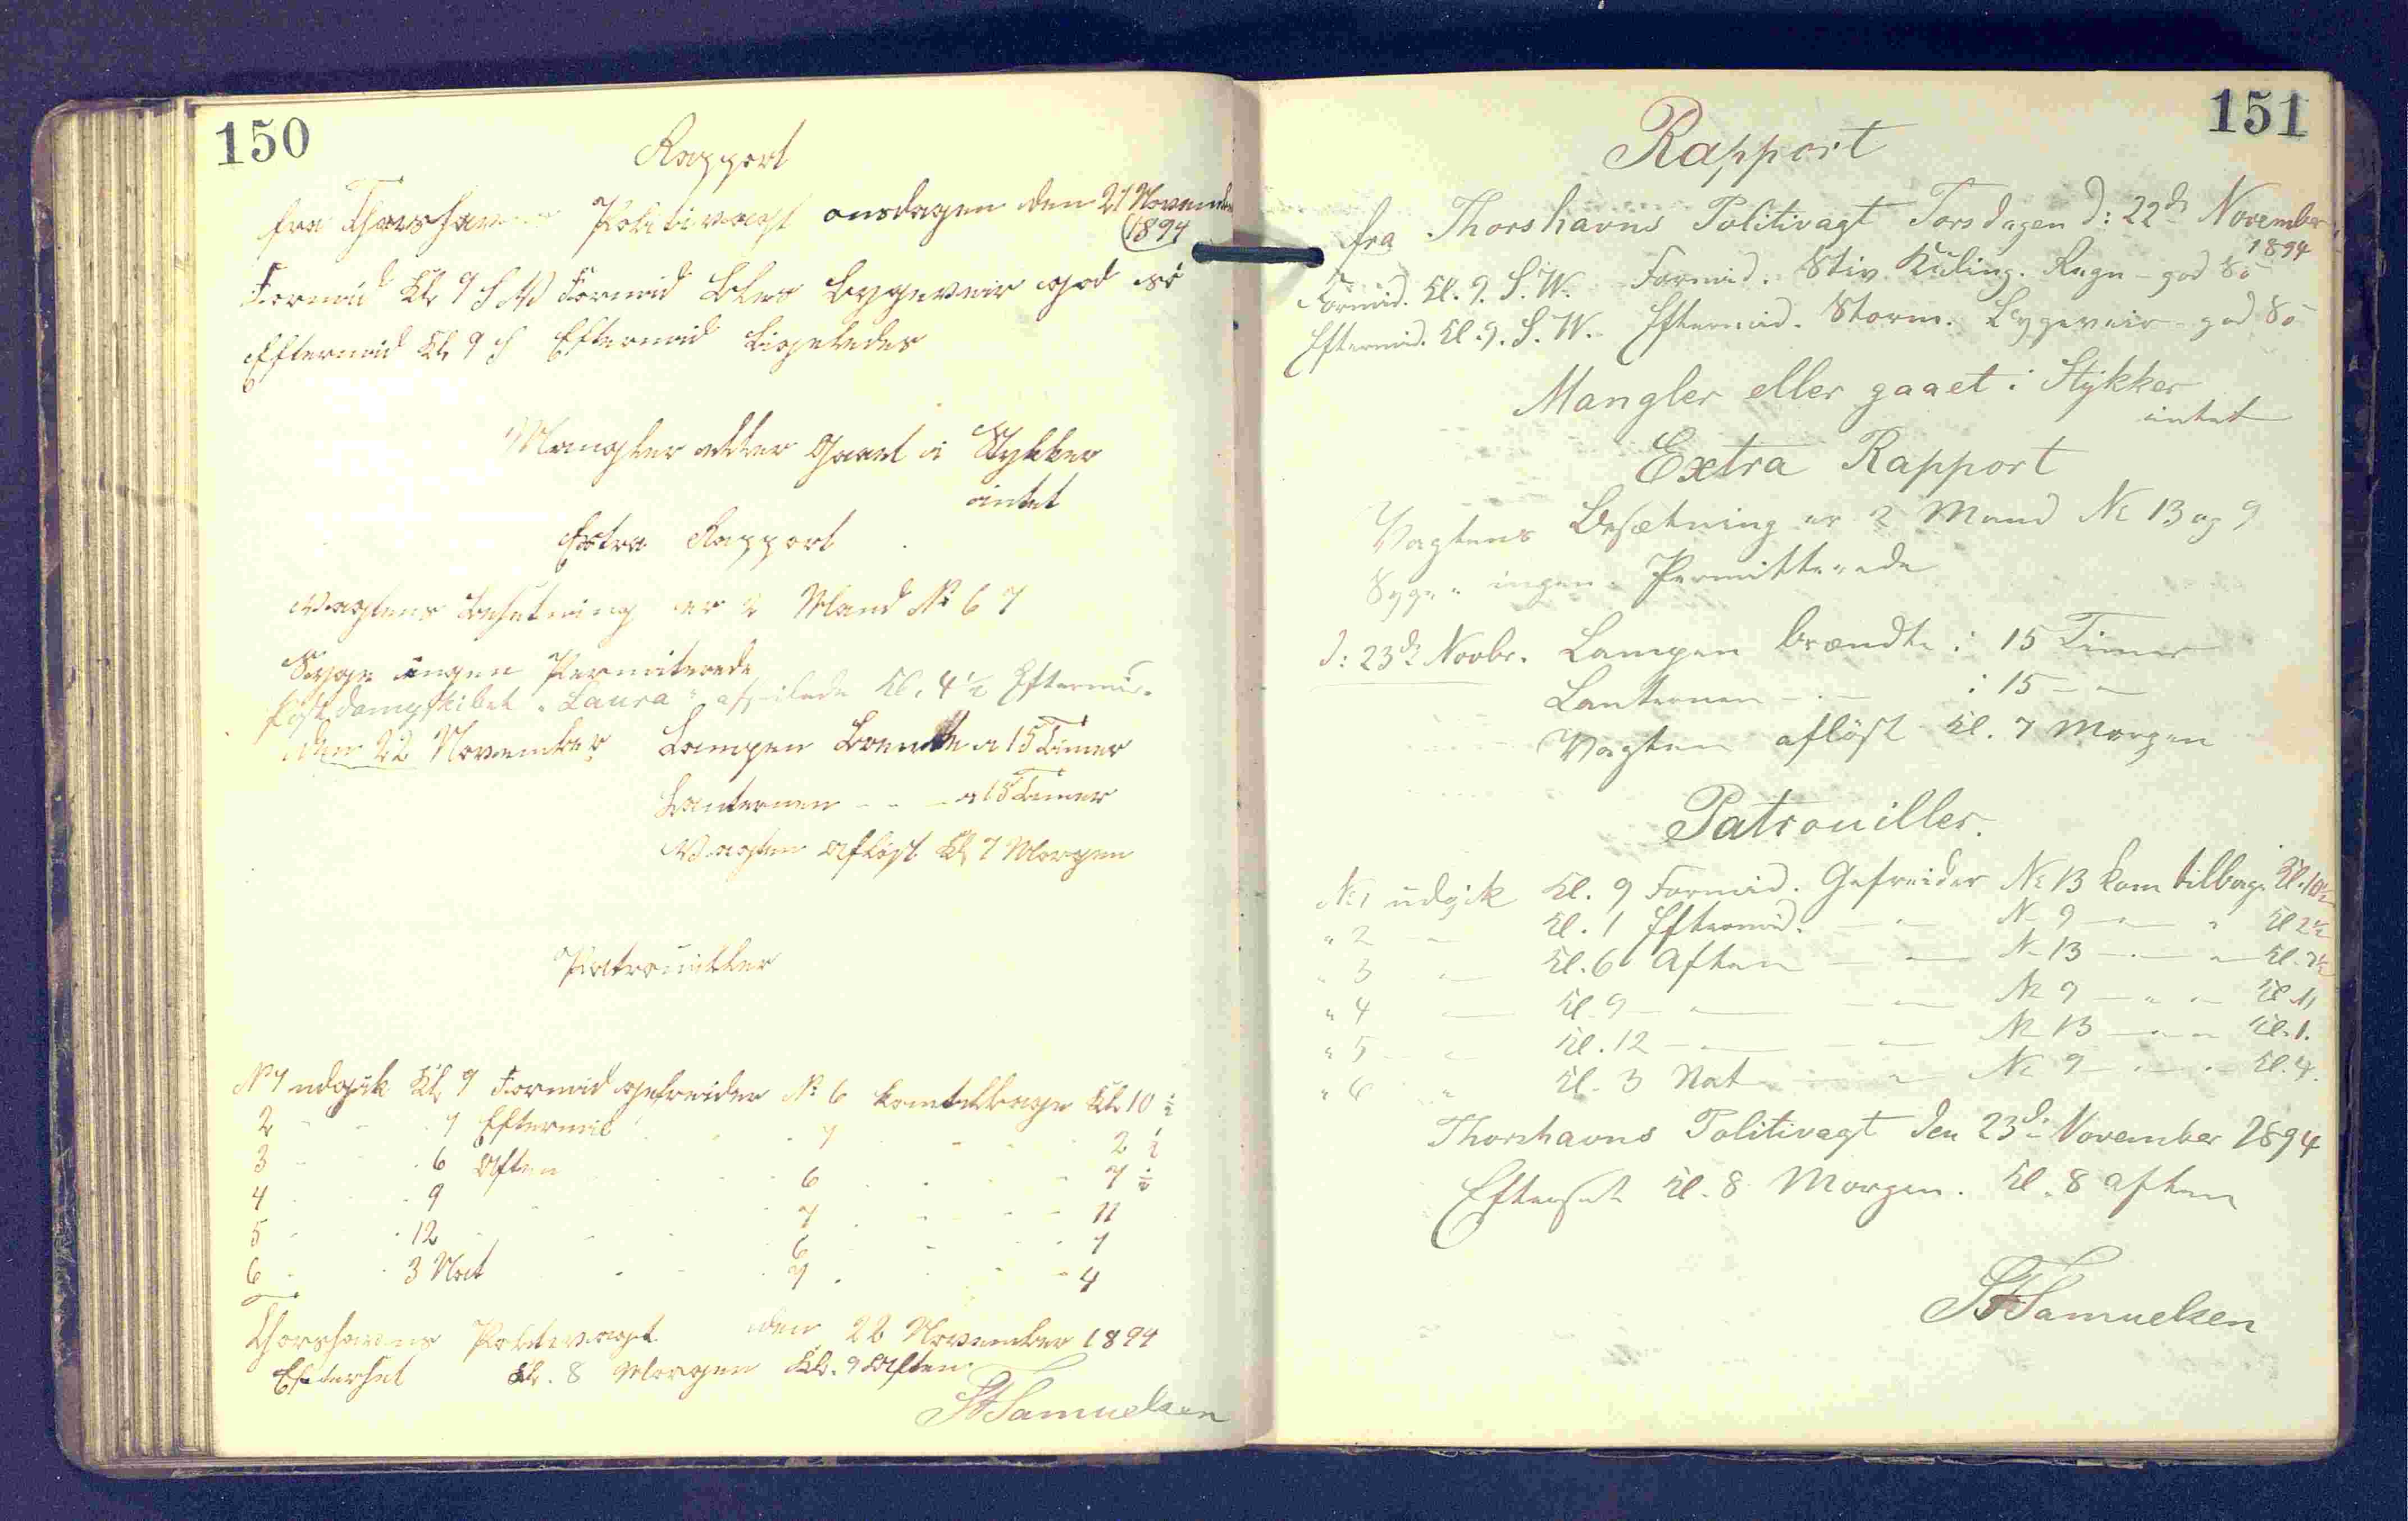 150
Rapport
fra Thorshavns Politivagt onsdagen den 21 November
1894
Formid Kl 9 S W Formid Bles Bygeveir god Sö
Eftermid Kl 9 S Eftermid ligeledes
Mangler eller Gaaet i Stykker
intet
Extra Rapport
Vagtens Besetning er 2 Mand No 6 7
Syge ingen Permiterede
Postdampskibet "Laura" afseilede Kl. 4 1/2 Eftermid.
den 22 November Lampen Brendte i 15 Timer
Lanternen - - - i 15 Timer
Vagten Afløst Kl 7 Morgen
Patrouiller
No 1 udgik Kl 9 Formid gefreider No 6 kom tilbage Kl 10 1/2
2 - - 1 Eftermid - - 7 - - 2 1/2
3 - - 6 Aften - - 6 - - 7 1/2
4 - - 9 - - 7 - - 11
5 - - 12 - - 6 - - 1
6 - - 3 Nat - - 7 - - 4
Thorshavns Politivagt den 22 November 1894
Efterset Kl. 8 Morgen Kl. 9 Aften
Samuelsen
151
Rapport
fra Thorshavns Politivagt Torsdagen d: 22de November
1894
Formid. Kl. 9. S. W. Formid. Stiv Kuling. Regn - god Sö
Eftermid. Kl. 9. S. W. Eftermid. Storm. Bygeveir - god Sö
Mangler eller gaaet i Stykker
intet
Extra Rapport
Vagtens Besætning er 2 Mand No 13 og 9
Syge " ingen " Permitterede
d: 23de Novbr. Lampen brændte i 15 Timer
Lanternen - " - i 15 - "
Vagten afløst Kl. 7 Morgen
Patrouiller.
No 1 udgik Kl. 9 Formid. Gefreider No 13 kom tilbage Kl. 10 1/2
" 2 - " Kl. 1 Eftermid. - " No 9 - " - " Kl 2 1/2
" 3 - " Kl. 6 Aften - " No 13 - " - " Kl. 7 1/2
" 4 - " Kl. 9 - " - " No 9 - " - " Kl 11
" 5 - " Kl. 12 - " - " No 13 - " - " Kl. 1.
" 6 - " Kl. 3 Nat - " No 9 - " - " Kl. 4.
Thorshavns Politivagt den 23de November 1894
Efterset Kl. 8 Morgen. Kl. 8 aften
Samuelsen